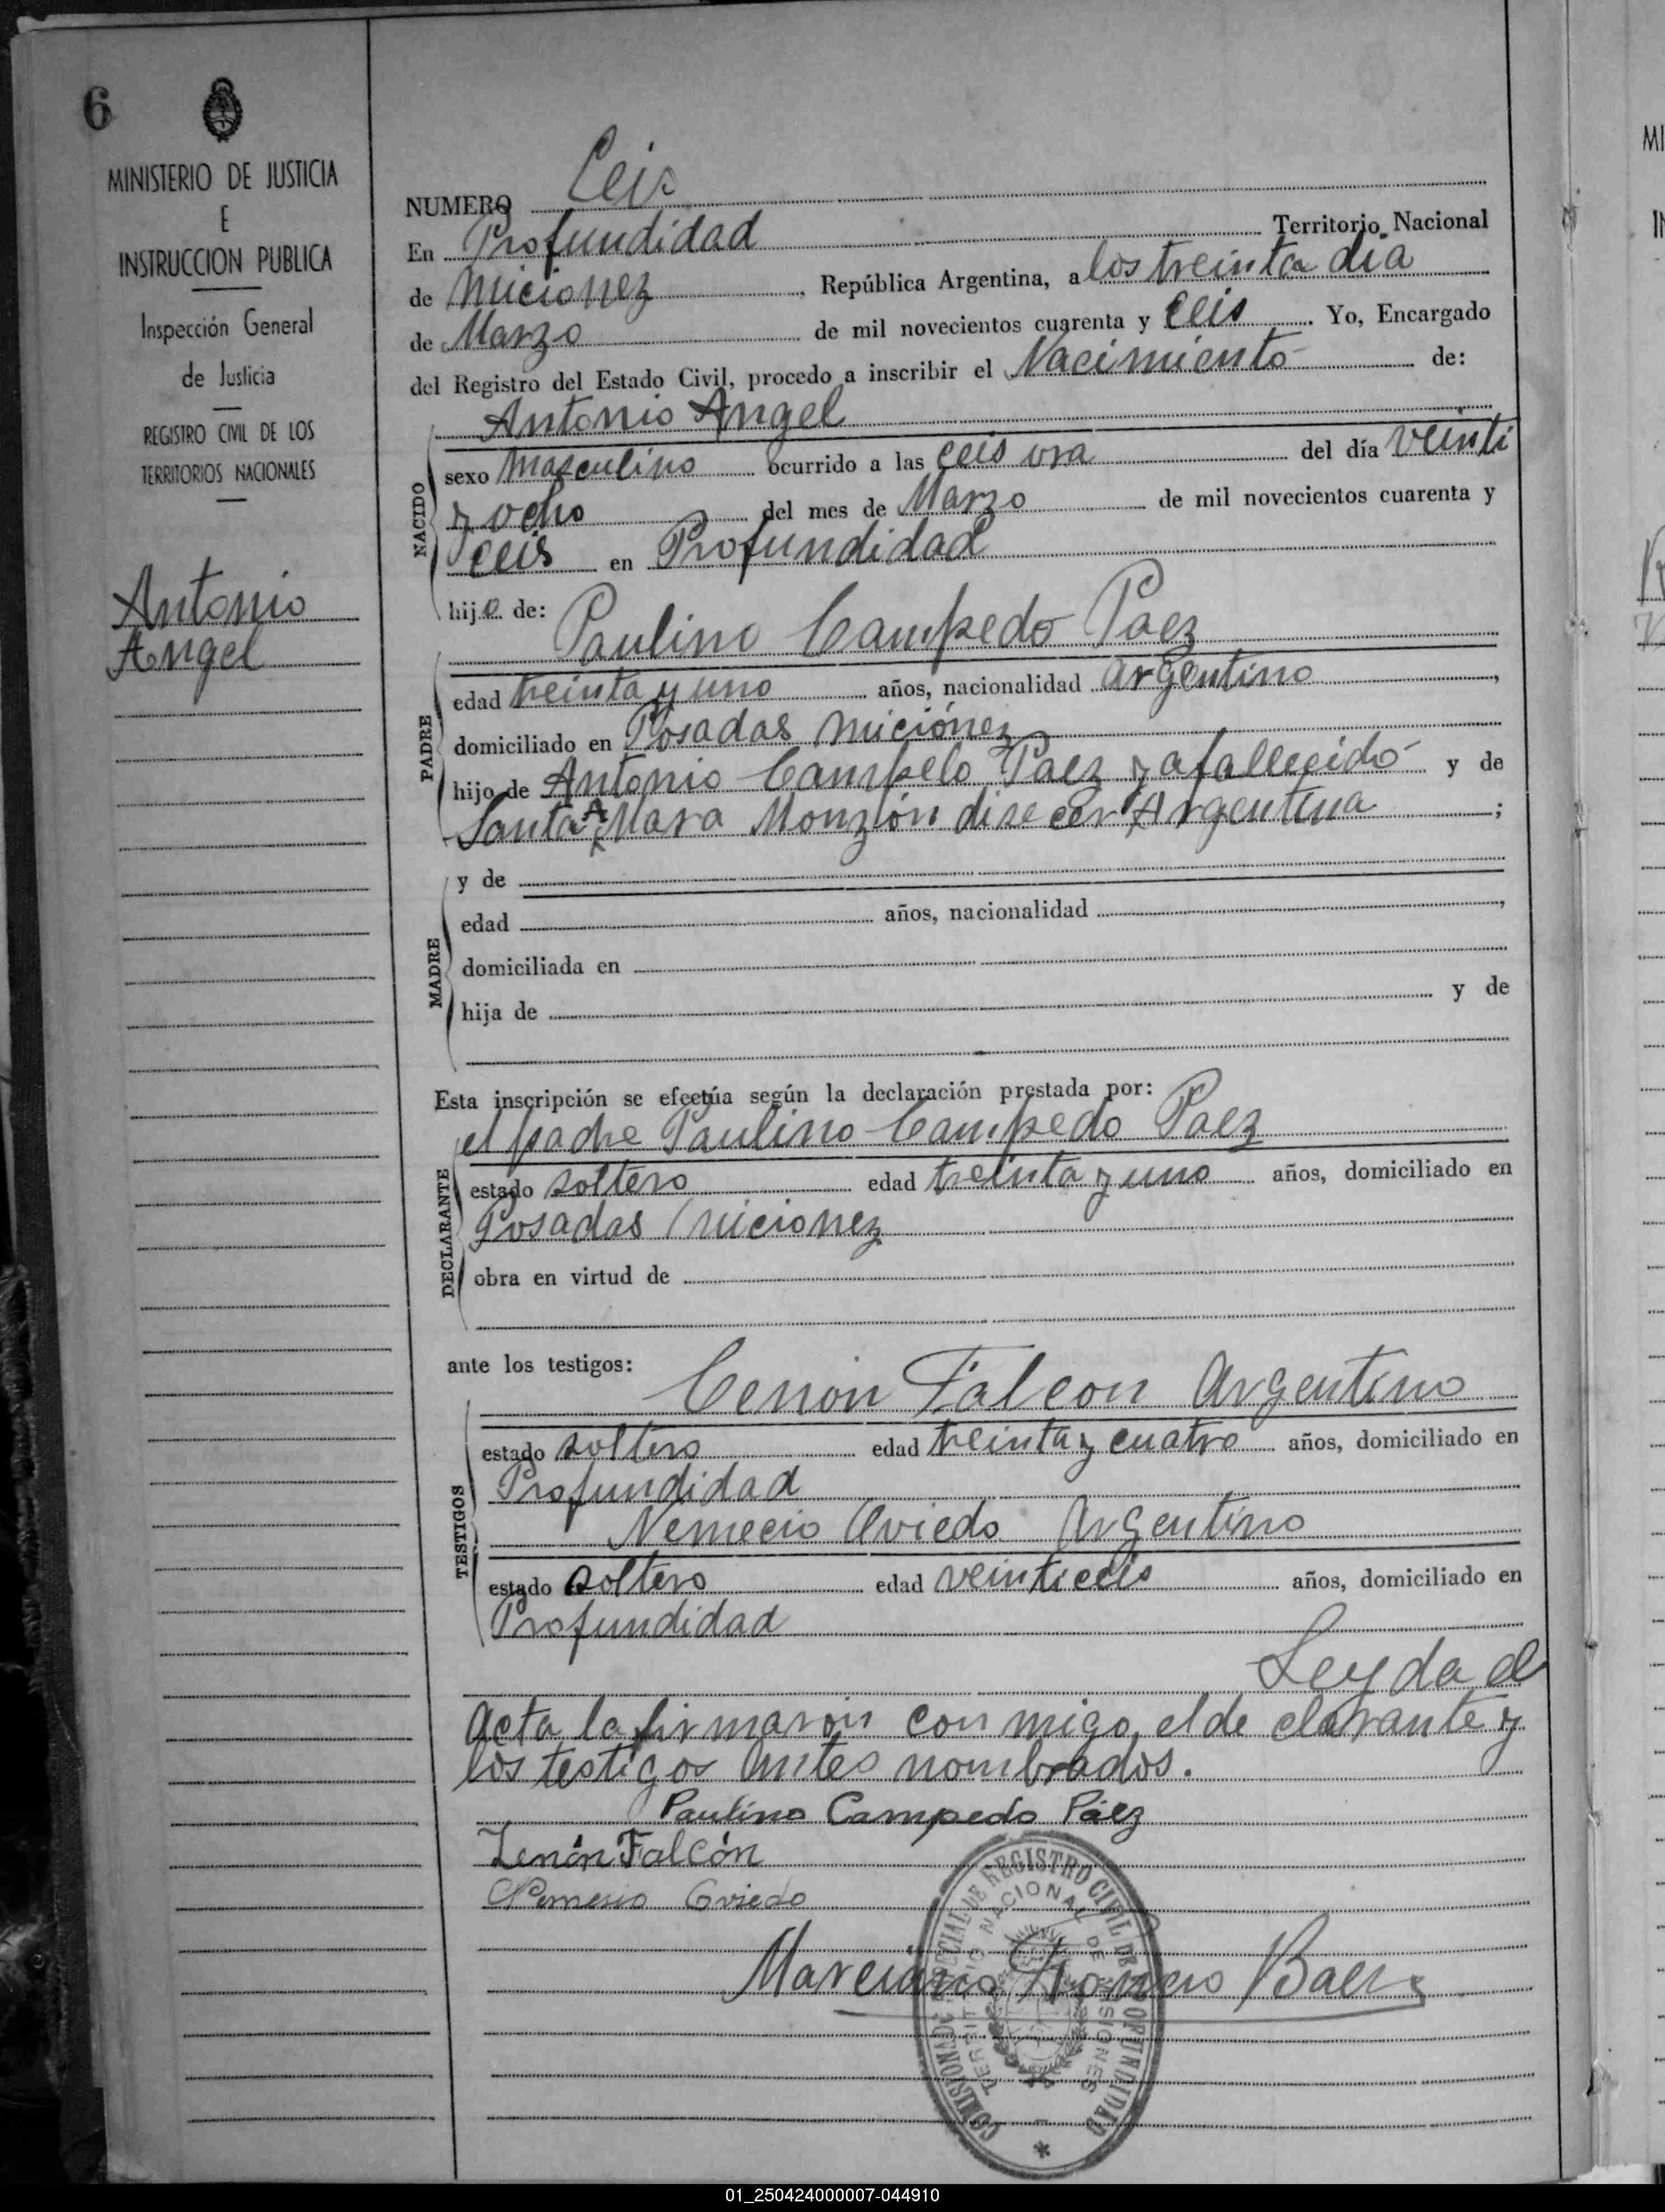 6
MINISTERIO DE JUSTICIA
E
INSTRUCCION PUBLICA
Inspección General
de Justicia
REGISTRO CIVIL DE LOS
TERRITORIOS NACIONALES
Antonio
Angel
NUMERO Ceis
En Profundidad Territorio Nacional
de Micionez, República Argentina, a los treinta dia
de Marzo de mil novecientos cuarenta y ceis. Yo, Encargado
del Registro del Estado Civil, procedo a inscribir el Nacimiento de:
Antonio Angel
NACIDO
sexo masculino ocurrido a las ceis ora del día veinti
y ocho del mes de Marzo de mil novecientos cuarenta y
ceis en Profundidad
hijo de:
Paulino Campedo Paez
PADRE
edad treinta y uno años, nacionalidad argentino,
domiciliado en Posadas micionez
hijo de Antonio Campelo Paez y afallecido y de
Santa A Mara Monzón dise cer Argentina;
y de
MADRE
edad años, nacionalidad,
domiciliada en
hija de y de
Esta inscripción se efectúa según la declaración prestada por:
el padre Paulino Campedo Paez
DECLARANTE
estado soltero edad treinta y uno años, domiciliado en
Posadas Micionez
obra en virtud de
ante los testigos:
Cenon Falcon Argentino
TESTIGOS
estado soltero edad treinta y cuatro años, domiciliado en
Profundidad
Nemecio Oviedo Argentino
estado soltero edad veinticeis años, domiciliado en
Profundidad
Leyda el
acta la firmaron con migo, el de clarante y
los testigos antes nombrados.
Paulino Campedo Páez
Zenón Falcón
Nemesio Oviedo
Marciano Baez
REGISTRO CIVIL DE PROFUNDIDAD
TERRITORIO NACIONAL DE MISIONES
01_250424000007-044910